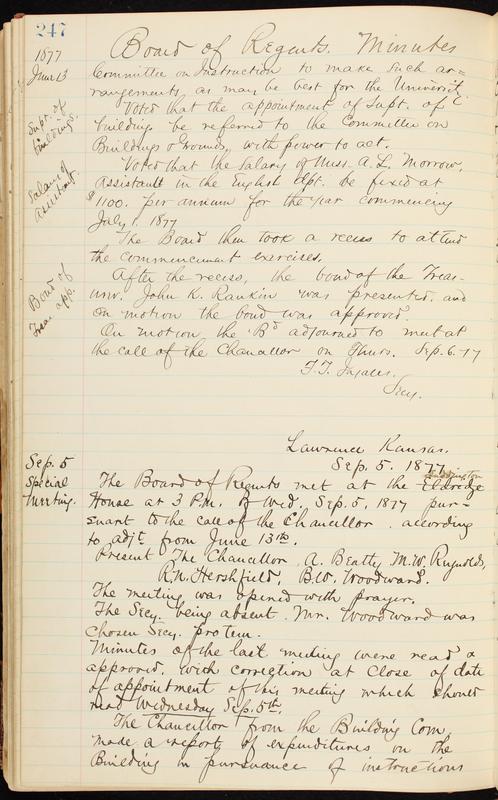 247
Board of Regents. Minutes
1877
June 13
Committee on Instruction to make such ar=
rangements as may be best for the Universit
Voted that the appointment of Supt. of
Supt. of
buildings.
buildings be referred to the Committee on
Buildings & Grounds, with power to act.
Voted that the Salary of Miss. A. L. Morrow,
Salary of
assistant
assistant in the English dpt. be fixed at
1100. per annum for the year commencing
July 1. 1877
The Board then took a recess to attend
the commencement exercises.
After the recess, the bond of the Treas-
Bond of
Treas. app.
urer. John K. Rankin was presented, and
on motion the bond was approved.
On motion the Bd adjourned to meet at
the call of the Chancellor on Thurs. Sep. 6. 77
Secy.
Lawrence Kansas.
Sep. 5. 1877
Sep. 5
Special
Meeting.
The Board of Regents met at the Eldridge
House at 3 P.M. of Wed. Sep. 5, 1877 pur-
suant to the call of the Chancellor according
to adjt. from June 13th.
Present The Chancellor, A. Beatty, M. W. Reynolds,
R. W. Hershfield, B. W. Woodward.
The meeting was opened with prayer.
The Secy. being absent. Mr. Woodward was
chosen Secy. pro tem.
Minutes of the last meeting were read &
approved, with correction at close of date
of appointment of this meeting which should
read Wednesday Sep. 5th.
The Chancellor from the Building Com.
made a report of expenditures on the
Building in pursuance of instructions